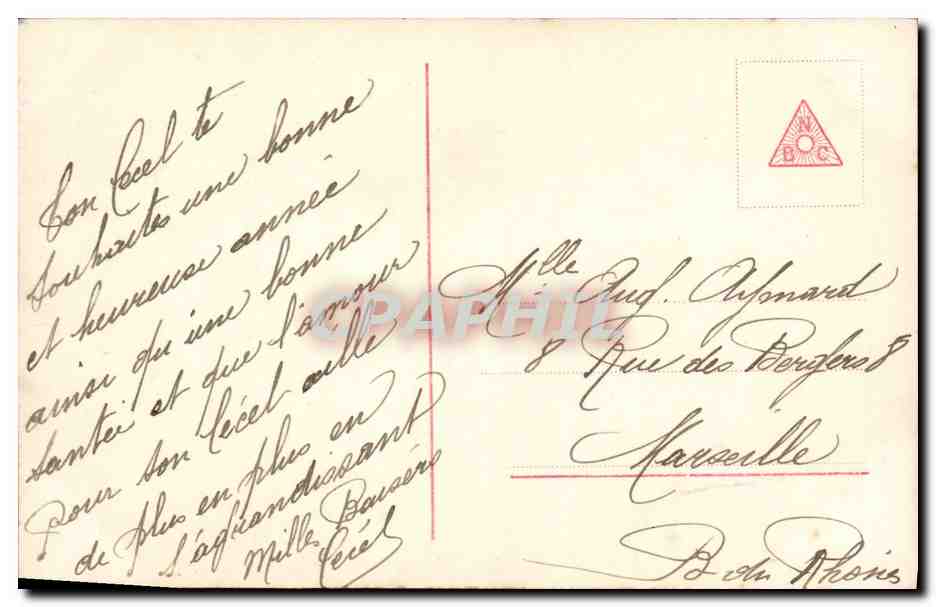 Ton Cécel te
souhaites une bonne
et heureuse année
ainsi qu'une bonne
santée et que l'amour
pour ton Cécel aille
de plus en plus en
s'agrandissant
Milles Baisers
Cécel
N
B C
Mlle Aug. Aymard
8 Rue des Bergers 8
Marseille
B du Rhônes
CPAPHIL